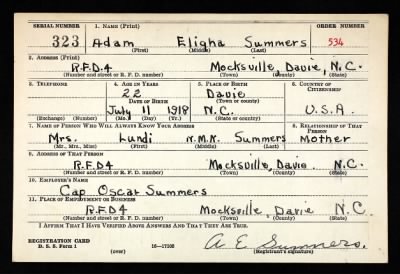 SERIAL NUMBER 1. NAME (Print) ORDER NUMBER
323 Adam Eligha Summers 534
(First) (Middle) (Last)
2. ADDRESS (Print)
R.F.D.4 Mocksville, Davie, N.C.
(Number and street or R. F. D. number) (Town) (County) (State)
3. TELEPHONE 4. AGE IN YEARS 5. PLACE OF BIRTH 6. COUNTRY OF CITIZENSHIP
22 Davie
DATE OF BIRTH (Town or county)
July 11 1918 N.C. U.S.A.
(Exchange) (Number) (Mo.) (Day) (Yr.) (State or country)
7. NAME OF PERSON WHO WILL ALWAYS KNOW YOUR ADDRESS 8. RELATIONSHIP OF THAT PERSON
Mrs. Lundi N.M.N. Summers Mother
(Mr., Mrs., Miss) (First) (Middle) (Last)
9. ADDRESS OF THAT PERSON
R.F.D4 Mocksville, Davie N.C.
(Number and street or R. F. D. number) (Town) (County) (State)
10. EMPLOYER'S NAME
Cap Oscar Summers
11. PLACE OF EMPLOYMENT OR BUSINESS
R.F.D4 Mocksville Davie N.C.
(Number and street or R. F. D. number) (Town) (County) (State)
I AFFIRM THAT I HAVE VERIFIED ABOVE ANSWERS AND THAT THEY ARE TRUE.
REGISTRATION CARD
D. S. S. Form 1 (over) 16—17105 A. E. Summers.
(Registrant's signature)